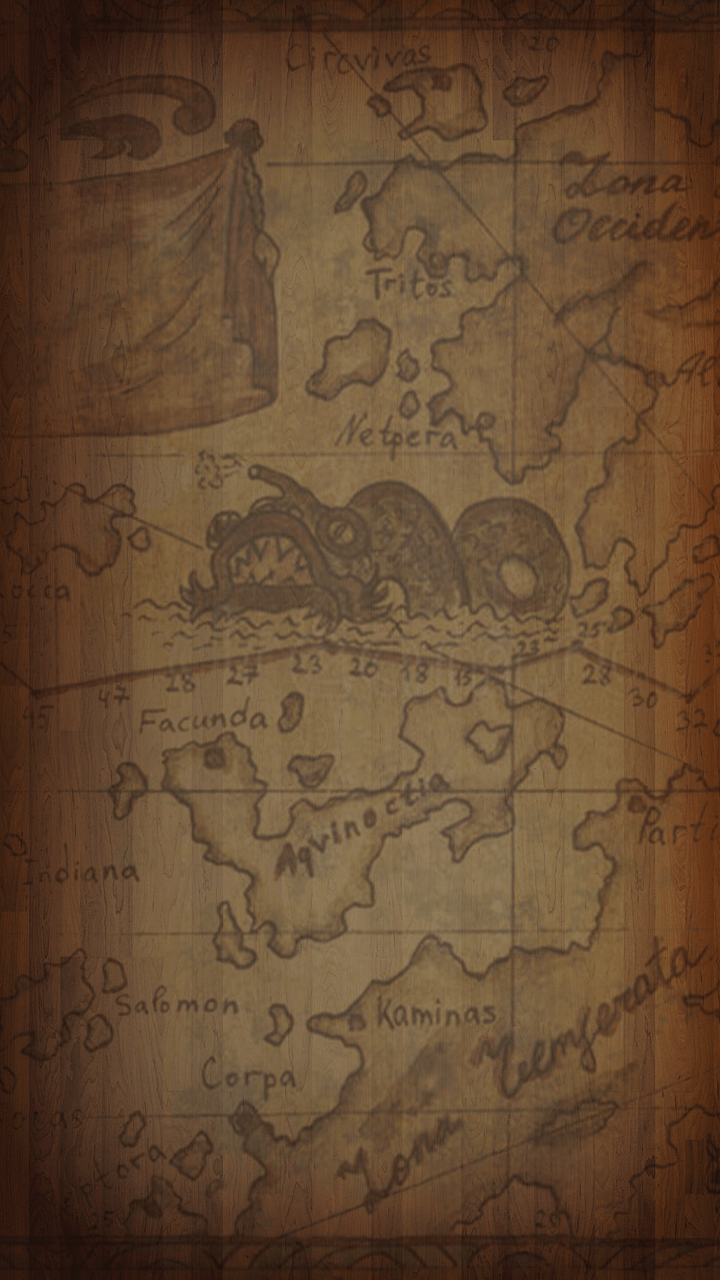 Ciravivas
20
Zona
Occiden
Tritos
Al
Netpera
occa
5
25
23
23 26 18 15
28 27
47
45
28
30
32
Facunda
Aqvinoctia
Parti
Indiana
Salomon
Kaminas
Zona Temperata
Corpa
ocas
ptora
25
20